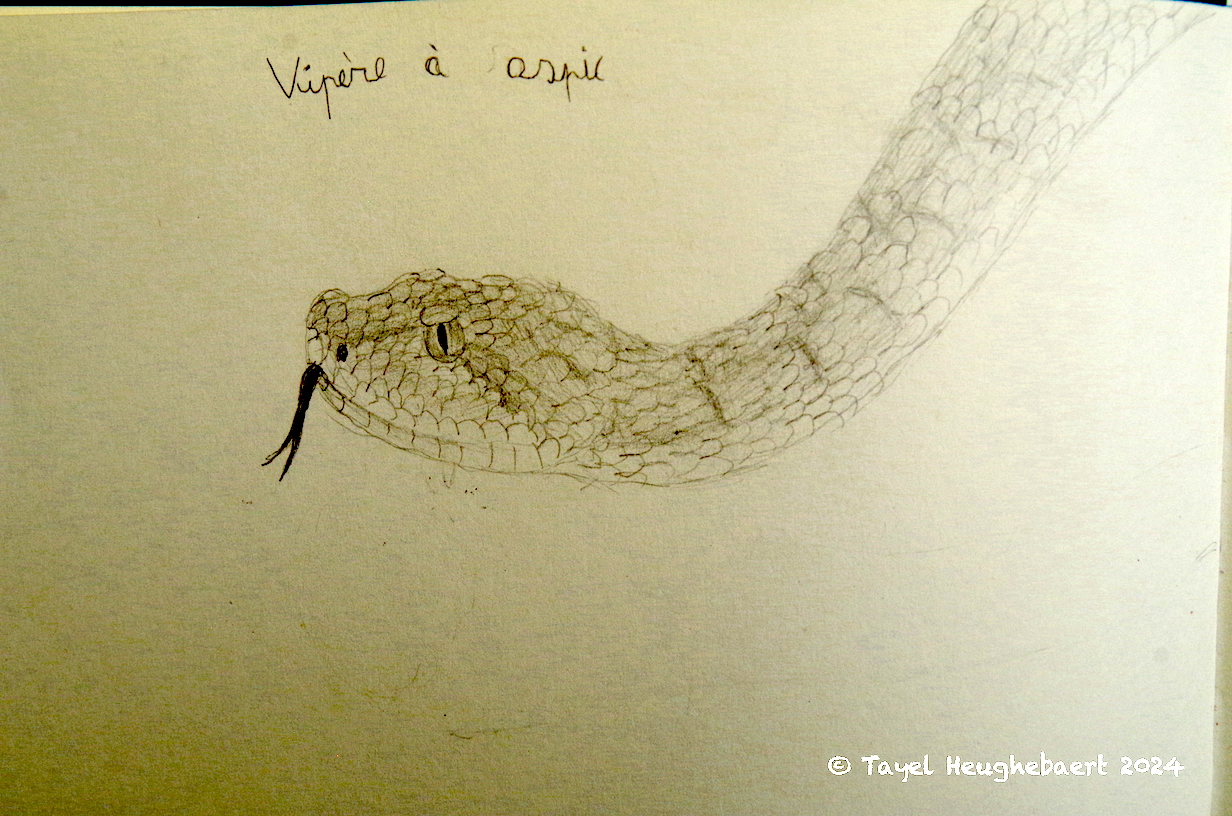 Vipère à aspic
© Tayel Heughebaert 2024